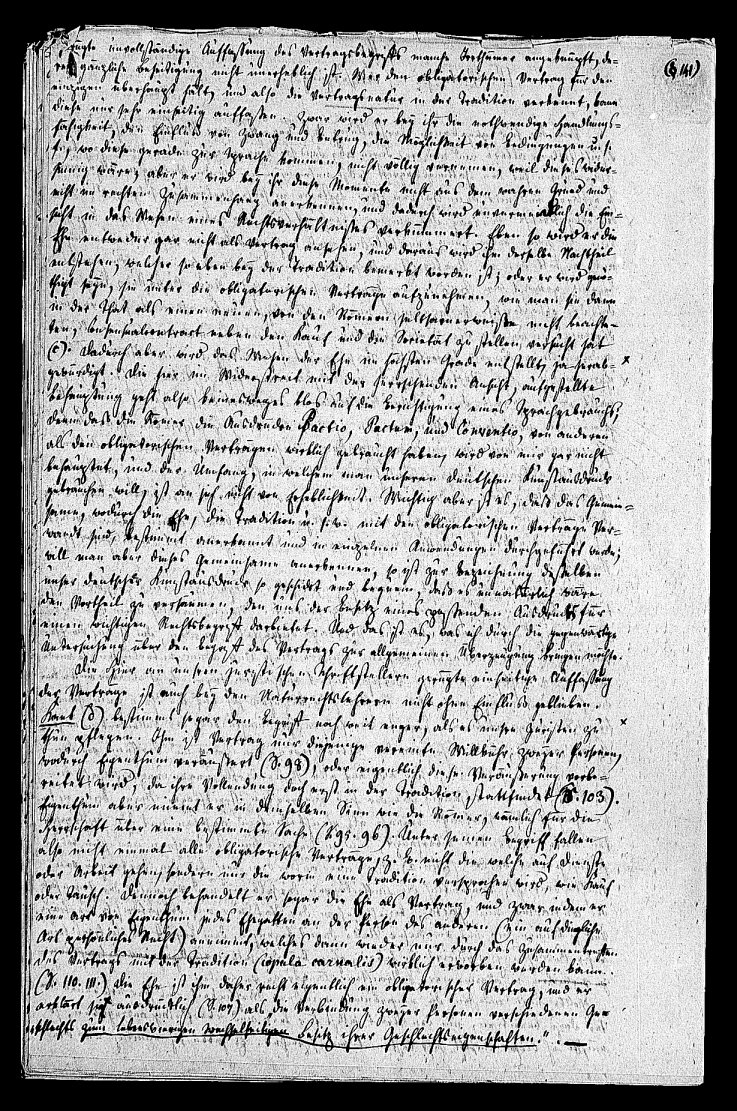 (§ 141)
rügte unvollständige Auffassung des Vertragsbegriffs manche Irrthümer angeknüpft, de-
ren gänzliche Beseitigung nicht unerheblich ist. Wer den obligatorischen Vertrag für den
einzigen überhaupt hält, und also die Vertragsnatur in der Tradition verkennt, kann
diese nur sehr einseitig auffassen. Zwar wird er bey ihr die nothwendige Handlungs-
fähigkeit, den Einfluß von Zwang und Betrug, die Möglichkeit von Bedingungen u. s.
f., wo diese gerade zur Sprache kommen, nicht völlig verneinen, weil dieses wider-
sinnig wäre; aber er wird bey ihr diese Momente nicht aus dem wahren Grund und
nicht im rechten Zusammenhang anerkennen, und dadurch wird unvermeidlich die Ein-
sicht in das Wesen eines Rechtsverhältnisses verkümmert. Eben so wird er die
Ehe entweder gar nicht als Vertrag ansehen, und daraus wird ihm derselbe Nachtheil
entstehen, welcher so eben bey der Tradition bemerkt worden ist; oder er wird genö-
thigt seyn, sie unter die obligatorischen Verträge aufzunehmen, wie man sie dann
in der That als einen neuen, von den Römern seltsamerweise nicht beachte-
ten, Consensualcontract neben den Kauf und die Societät zu stellen versucht hat
(c). Dadurch aber wird das Wesen der Ehe im höchsten Grade entstellt, ja herab-
gewürdigt. Die hier im Widerstreit mit der herrschenden Ansicht, aufgestellte
Behauptung geht also keinesweges blos auf die Berichtigung eines Sprachgebrauchs;
denn daß die Römer die Ausdrücke Pactio, Pactum, und Conventio, von anderen
als den obligatorischen Verträgen wirklich gebraucht haben, wird von mir gar nicht
behauptet, und der Umfang, in welchem man unseren deutschen Kunstausdruck
gebrauchen will, ist an sich nicht von Erheblichkeit. Wichtig aber ist es, daß das Gemein-
same, wodurch die Ehe, die Tradition u. s. w. mit den obligatorischen Verträgen ver-
wandt sind, bestimmt anerkannt und in einzelnen Anwendungen durchgeführt werde;
will man aber dieses Gemeinsame anerkennen, so ist zur Bezeichnung desselben
unser deutscher Kunstausdruck so geschickt und bequem, daß es unnatürlich wäre
den Vortheil zu versäumen, den uns der Besitz eines passenden Ausdrucks für
einen wichtigen Rechtsbegriff darbietet. Und das ist es, was ich durch die gegenwärtige
Untersuchung über den Begriff des Vertrags zur allgemeinen Überzeugung bringen möchte.
Die hier an unsern juristischen Schriftstellern gerügte einseitige Auffassung
der Verträge, ist auch bey den Naturrechtslehrern nicht ohne Einfluß geblieben.
Kant (d) bestimmt sogar den Begriff noch weit enger, als es unsre Juristen zu
thun pflegen. Ihm ist Vertrag nur diejenige vereinte Willkühr zweyer Personen,
wodurch Eigenthum veräußert (S. 98), oder eigentlich diese Veräußerung vorbe-
reitet wird, da ihre Vollendung doch erst in der Tradition stattfindet (S. 103).
Eigenthum aber nimmt er in demselben Sinn wie die Römer, nämlich für die
Herrschaft über eine bestimmte Sache (S. 95. 96). Unter seinen Begriff fallen
also nicht einmal alle obligatorische Verträge, z. B. nicht die welche auf Dienste
oder Arbeit gehen, sondern nur die worin eine Tradition versprochen wird, wie Kauf
oder Tausch. Dennoch behandelt er sogar die Ehe als Vertrag, und zwar indem er
eine Art von Eigenthum jedes Ehegatten an der Person des anderen (ein auf dingliche
Art persönliches Recht) annimmt, welches dann wieder nur durch das Zusammentreffen
des Vertrags mit der Tradition (copula carnalis) wirklich erworben werden kann.
(S. 110. 111.) Die Ehe ist ihm daher recht eigentlich ein obligatorischer Vertrag, und er
erklärt sie ausdrücklich (S. 107) als die Verbindung zweyer Personen verschiedenen Ge-
schlechts zum lebenswierigen wechselseitigen Besitz ihrer Geschlechtseigenschaften." . —